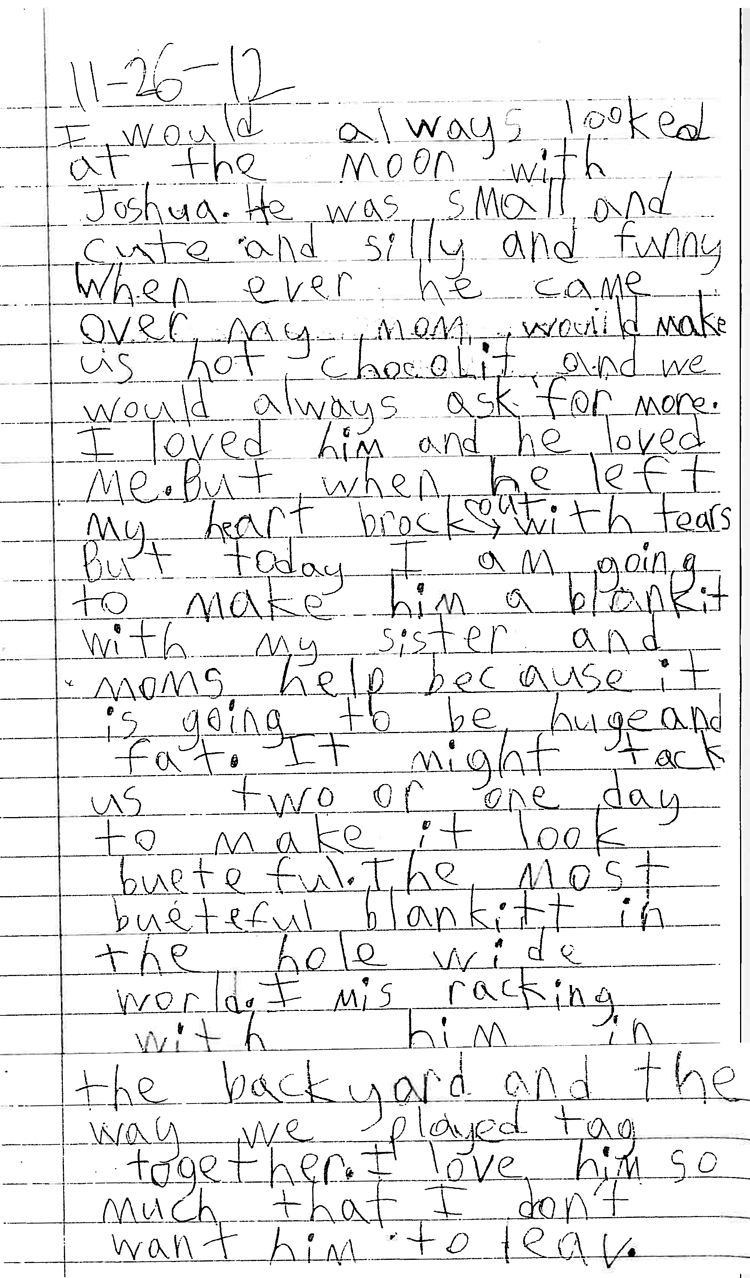 11-26-12
I would always looked
at the moon with
Joshua. He was small and
cute and silly and funny
When ever he came
over my mom wouild make
us hot chocolit and we
would always ask for more.
I loved him and he loved
me. But when he left
my heart brock out with tears
But today I am going
to make him a blankit
with my sister and
moms help because it
is going to be huge and
fat. It might tack
us two or one day
to make it look
bueteful. The most
bueteful blankitt in
the hole wide
world. I mis racking
with him in
the backyard and the
way we played tag
together. I love him so
much that I don't
want him to leav.